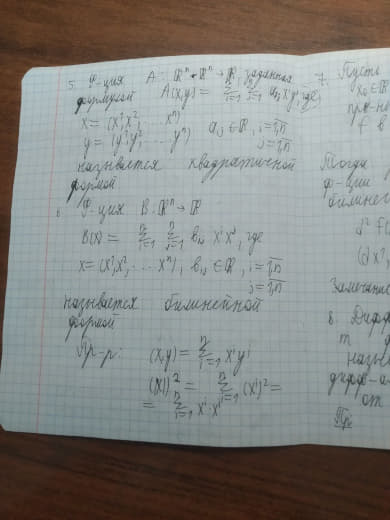 5. Ф-ция A: ℝⁿ × ℝⁿ → ℝ, заданная
формулой A(x,y) = Σⁿᵢ₌₁ Σⁿⱼ₌₁ aᵢⱼ xⁱ yʲ, где
x = (x¹, x², ... xⁿ)
y = (y¹, y², ... yⁿ) aᵢⱼ ∈ ℝ, i = 1,n
j = 1,n
называется квадратичной
формой
6. Ф-ция B: ℝⁿ → ℝ
B(x) = Σⁿᵢ₌₁ Σⁿⱼ₌₁ bᵢⱼ xⁱ xʲ, где
x = (x¹, x², ... xⁿ), bᵢⱼ ∈ ℝ, i = 1,n
j = 1,n
называется билинейной
формой
Пр-р: (x,y) = Σⁿᵢ₌₁ xⁱ yⁱ
(|x|)² = Σⁿᵢ₌₁ (xⁱ)² =
= Σⁿᵢ₌₁ xⁱ · xⁱ
7. Пусть
x₀ ∈ ℝ
пр-не
f в
Тогда
ф-ции
билине
d² f(
(dx¹,
Замечание
8. Дифф
m
назы
дифф-а
от
Пр: